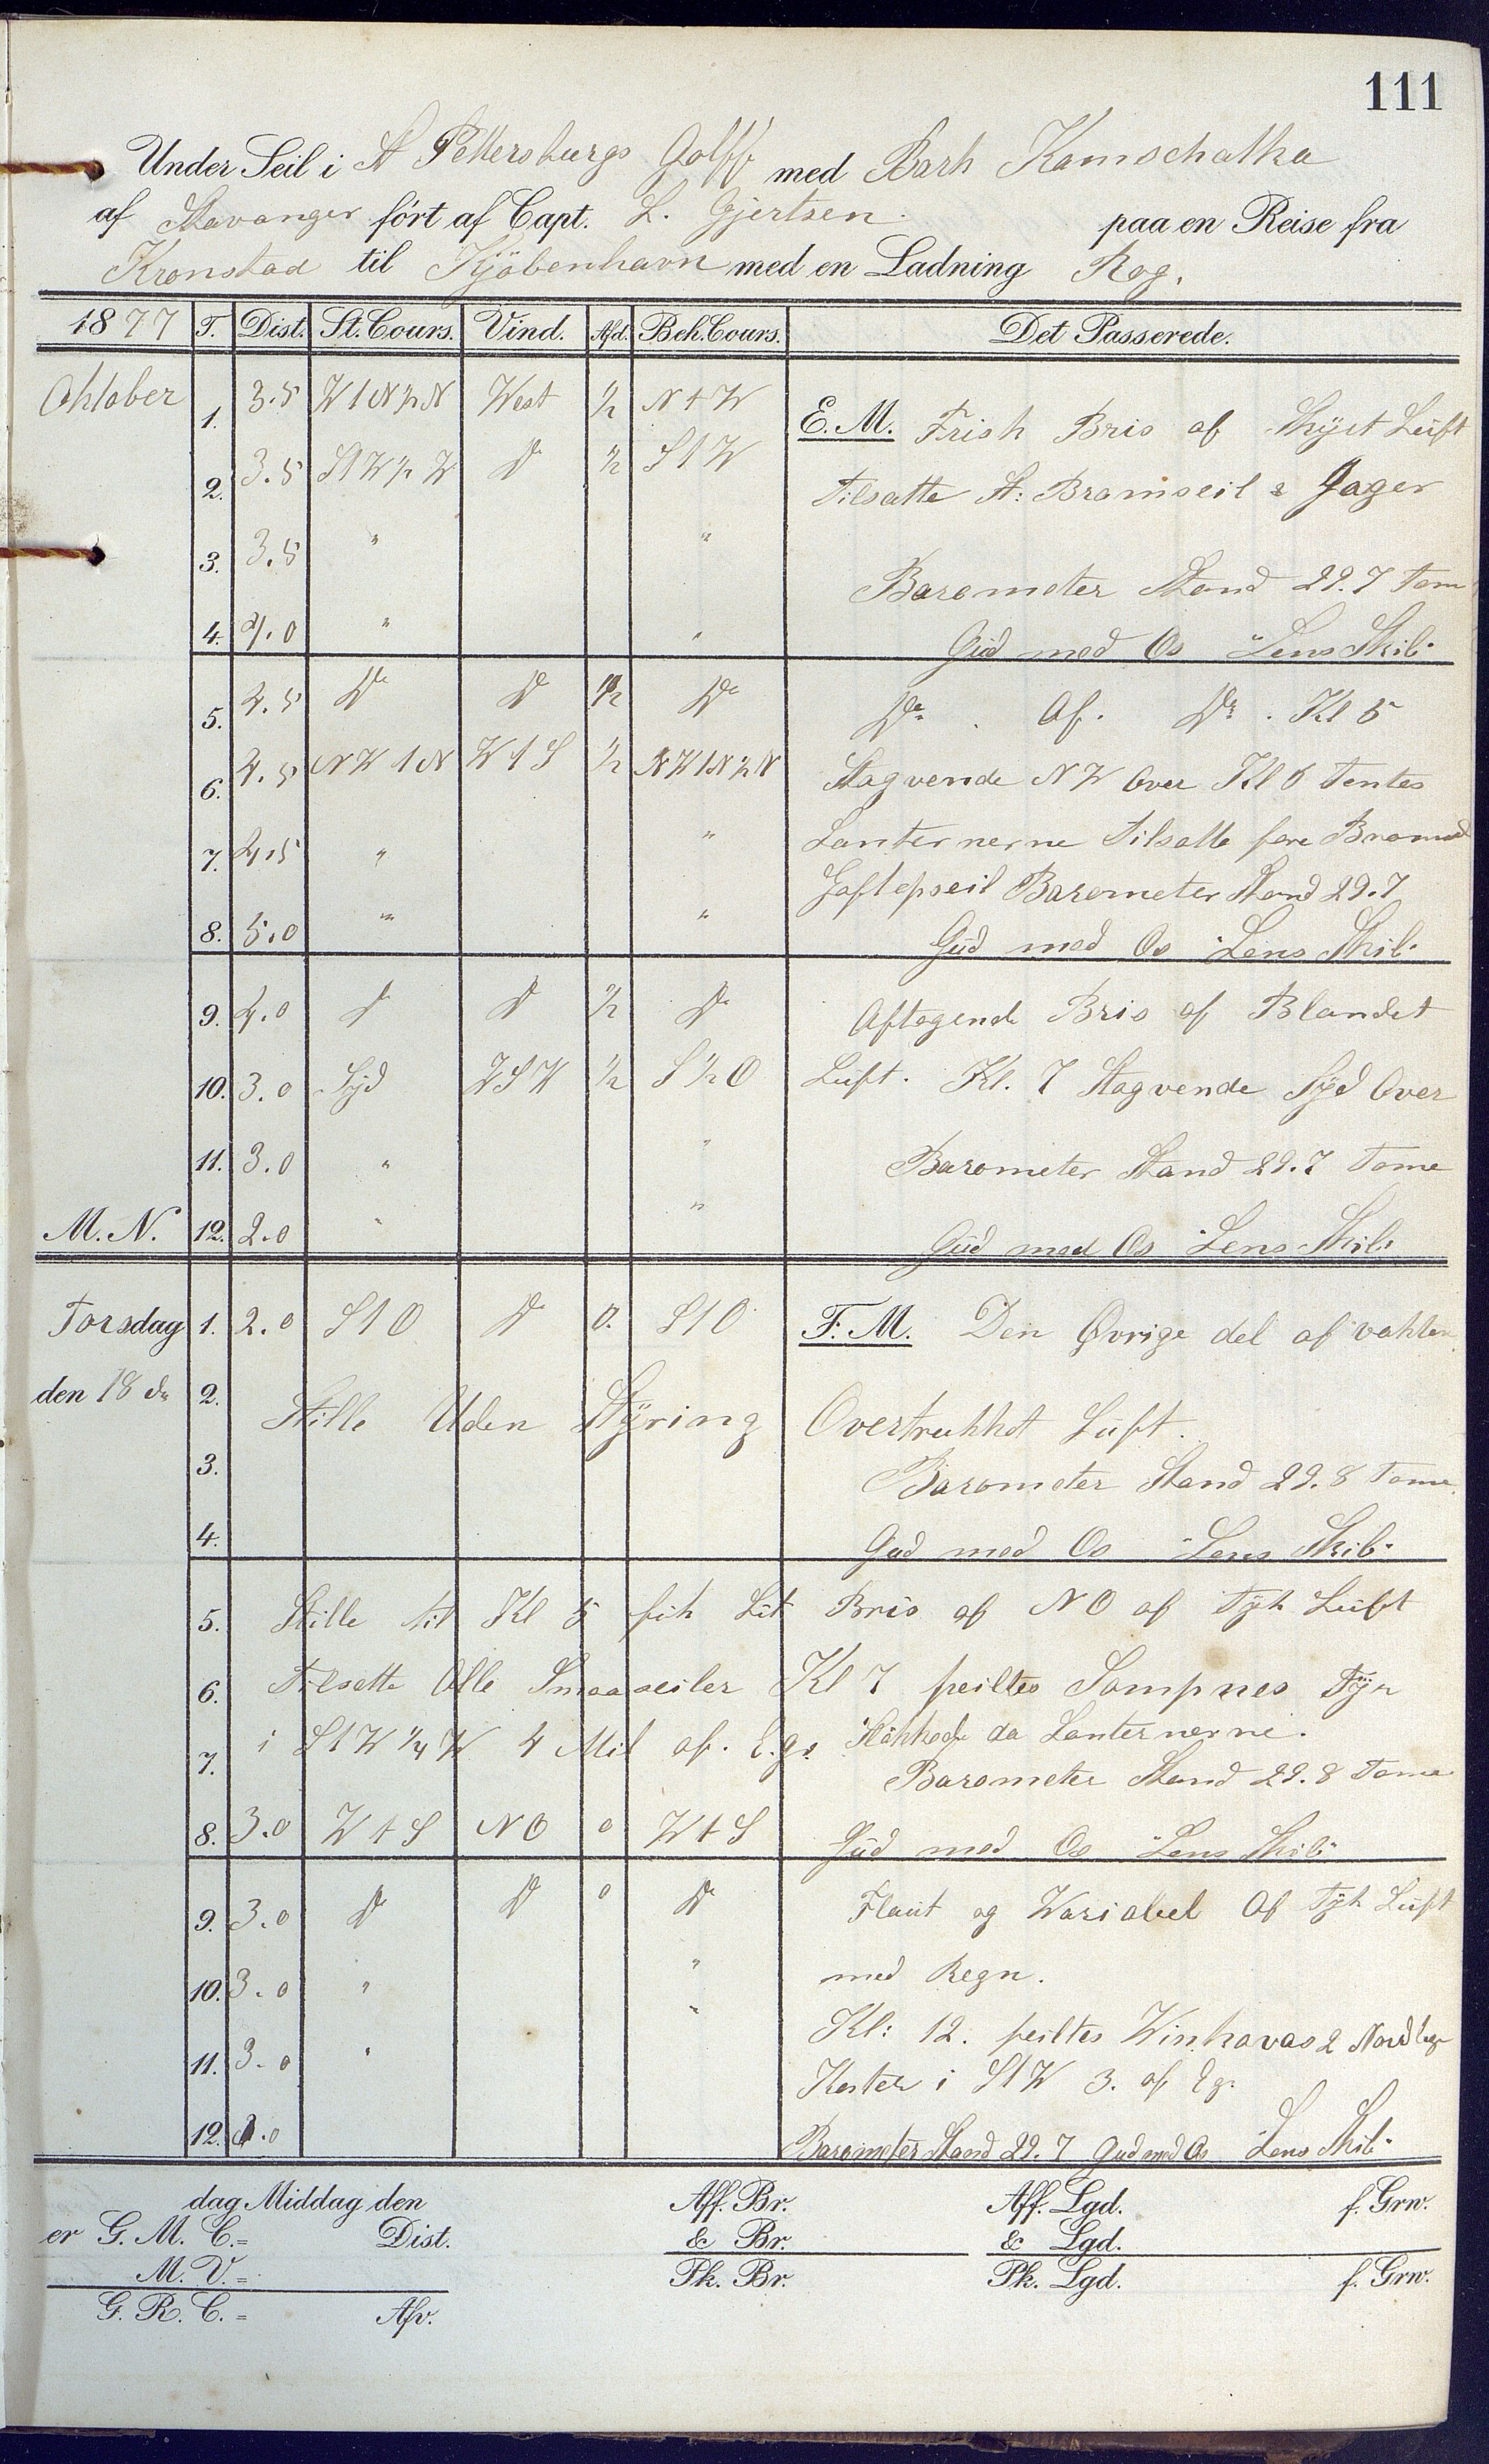 111
Under Seil i St Pettersburgs Golff med Bark Kamschatka
af Stavanger fört af Capt. L. Gjertsen. paa en Reise fra
Kronstad til Kjöbenhavn med en Ladning Rog.
1877 T. Dist. St. Cours. Vind. Afd. Beh. Cours. Det Passerede.
Oktober 1. 3.5 W t N ½ N West ½ N t W E. M. Frisk Bris af Skÿet Lüft
2. 3.5 S t W ½ W Do ½ S t W Tilsatte St: Bramseil & Jager
3. 3.5 " " Barometer Stand 29.7 Tom
4. 4.0 " " Güd med Os "Lens Skib"
5. 4.5 Do Do ½ Do Do . Af. Do . Kl 5
6. 4.5 NW t N W t S ½ NW t N ½ N Stagvende NW Over Kl 6 Tentes
7. 4.5 " " Lanternerne Tilsatte fore Bramseil
Gaftopseil Barometer Stand 29.7
8. 5.0 " " Güd med Os "Lens Skib"
9. 4.0 Do Do ½ Do Aftagende Bris af Blandet
10. 3.0 Sÿd WSW ½ S ½ O Lüft. Kl. 7 Stagvende Sÿd Over
11. 3.0 " " Barometer Stand 29.7 Tome
M. N. 12. 2.0 " " Güd med Os "Lens Skib"
Torsdag 1. 2.0 S t O Do 0. S t O F. M. Den Øvrige del af vakten
den 18 de 2. Stille Uden Stÿring Overtrukket Lüft.
3. Barometer Stand 29.8 Tome.
4. Gud med Os "Lens Skib"
5. Stille til Kl 5 fik Lit Bris af NO af Tÿk Lüft
6. Tilsatte Alle Smaaseiler Kl 7 peiltes Sompnes Fÿr
7. i S t W ¼ W 4 Mil af. E.gs. Slökkede da Lanternerne.
Barometer Stand 29.8 Tome
8. 3.0 W t S NO 0 W t S Güd med Os "Lens Skib"
9. 3.0 Do Do 0 Do Flaüt og Wariabel Af Tÿk Lüft
10. 3.0 " " med Regn.
Kl: 12. peiltes Winkovas 2 Nordlige
11. 3.0 " " Koster i S t W 3. af Eg.
12. .0 Barometer Stand 29.7 Gud med Os "Lens Skib"
dag Middag den Aff. Br. Aff. Lgd. f. Grw.
er G. M. C.= Dist. & Br. & Lgd.
M. V.= Pk. Br. Pk. Lgd. f. Grw.
G. R. C.= Afv.